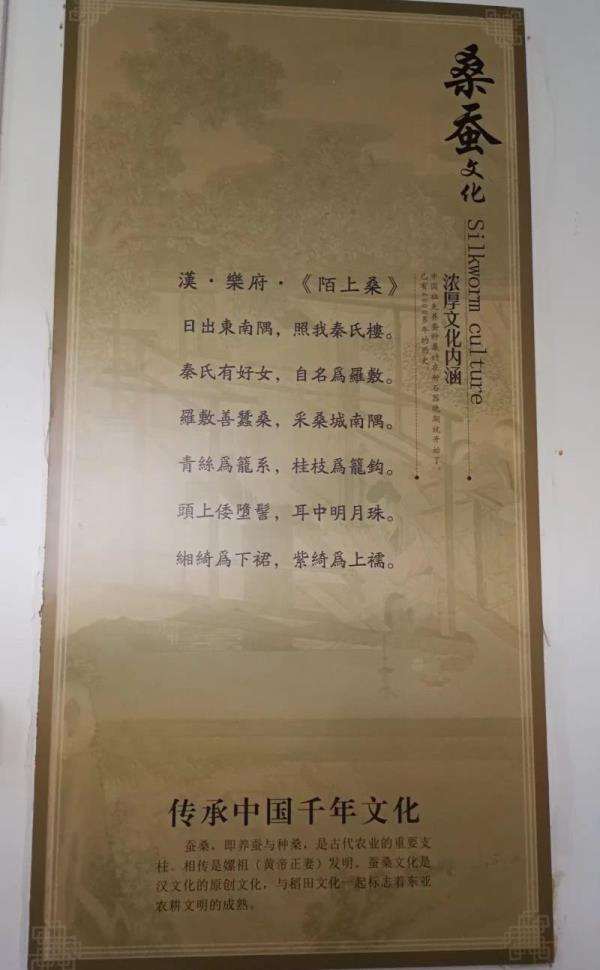 桑蚕文化
Silkworm culture
浓厚文化内涵
中国祖先养蚕种桑的农耕石器晚期就开始了,
漢·樂府·《陌上桑》
日出東南隅,照我秦氏樓。
秦氏有好女,自名爲羅敷。
羅敷善蠶桑,采桑城南隅。
青絲爲籠系,桂枝爲籠鈎。
頭上倭墮髻,耳中明月珠。
緗綺爲下裙,紫綺爲上襦。
传承中国千年文化
蚕桑,即养蚕与种桑,是古代农业的重要支
柱。相传是嫘祖(黄帝正妻)发明。蚕桑文化是
汉文化的原创文化,与稻田文化一起标志着东亚
农耕文明的成熟。